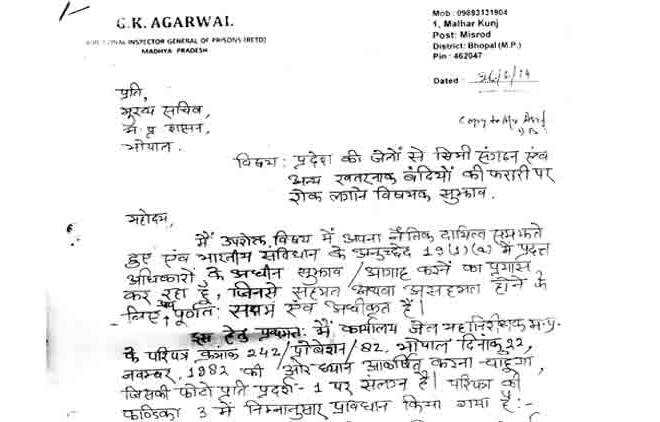 G.K. AGARWAL
INSPECTOR GENERAL OF PRISONS (RETD)
MADHYA PRADESH
Mob : 09893131904
1, Malhar Kunj
Post: Misrod
District: Bhopal (M.P.)
Pin : 462047
Dated :
Copy to Mr.
प्रति,
मुख्य सचिव,
म.प्र. शासन,
भोपाल.
विषय: प्रदेश की जेलों से सिमी संगठन एंव
अन्य खतरनाक बंदियों की फरारी पर
रोक लगाने विषयक सुझाव.
महोदय,
मैं उपरोक्त विषय में अपना नैतिक दायित्व समझते
हुए एंव भारतीय संविधान के अनुच्छेद 19(1)(a) में प्रदत्त
अधिकारों के अधीन सुझाव / आगाह करने का प्रयास
कर रहा हूँ, जिनसे सहमत अथवा असहमत होने के
लिए आप पूर्णतः सक्षम एंव अधीकृत हैं।
इस हेतु प्रथमतः मैं कार्यालय जेल महानिरीक्षक म.प्र.
के परिपत्र क्रमांक 242/प्रोबेशन/82, भोपाल दिनांक 22,
नवम्बर, 1982 की ओर ध्यान आकर्षित करना चाहूंगा,
जिसकी फोटो प्रति प्रदर्श-1 पर संलग्न है। परिपत्र की
कण्डिका 3 में निम्नानुसार प्रावधान किया गया है:-